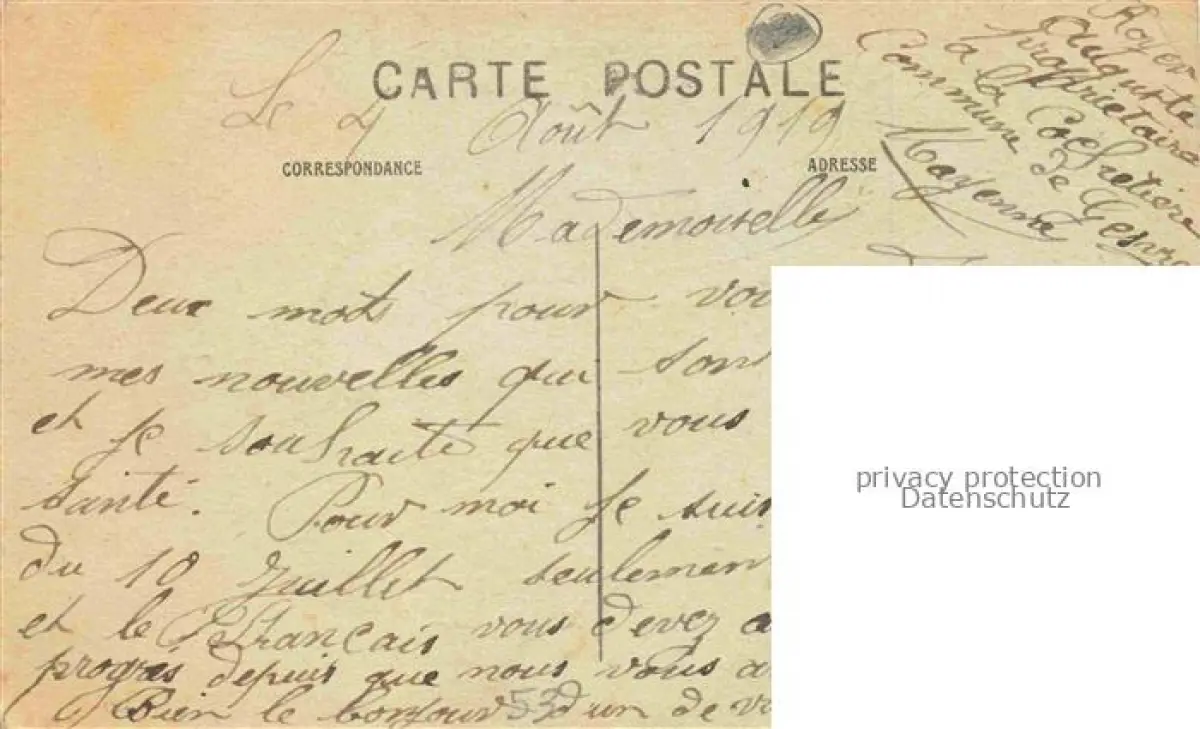 CARTE POSTALE
Le 4 Août 1919
CORRESPONDANCE
ADRESSE
Royer
Auguste
propriétaire
a la Cochetière
Commune de Gesvre
Mayenne
Mademoiselle
Deux mots pour vou
mes nouvelles qui son
et je souhaite que vous
santé. Pour moi je suis
du 10 Juillet seulemen
et le Français vous devez a
progrés depuis que nous vous a
Bien le bonjour d'un de v
53
privacy protection
Datenschutz